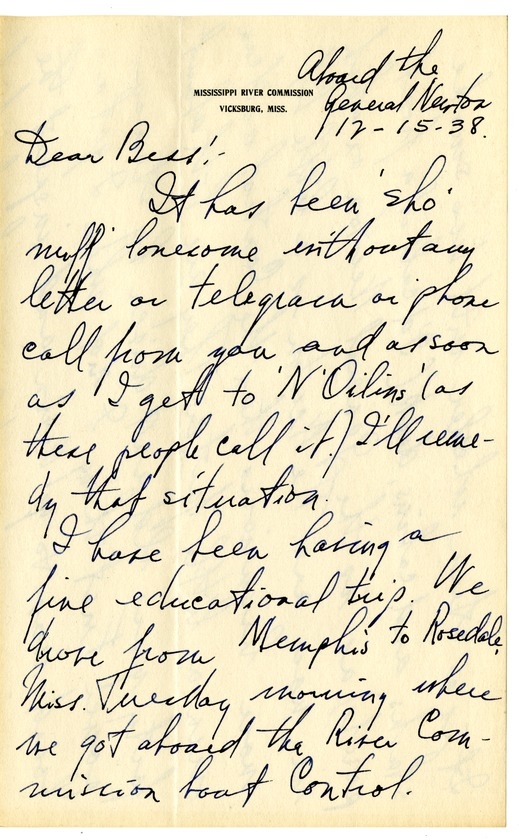 Aboard the
MISSISSIPPI RIVER COMMISSION
General Newton
VICKSBURG, MISS.
12-15-38.
Dear Bess:-
It has been 'sho'
nuff' lonesome without any
letter or telegram or phone
call from you and as soon
as I get to 'N'Oilins' (as
these people call it) I'll reme-
dy that situation.
I have been having a
fine educational trip. We
drove from Memphis to Rosedale,
Miss. Tuesday morning where
we got aboard the River Com-
mission boat Control.